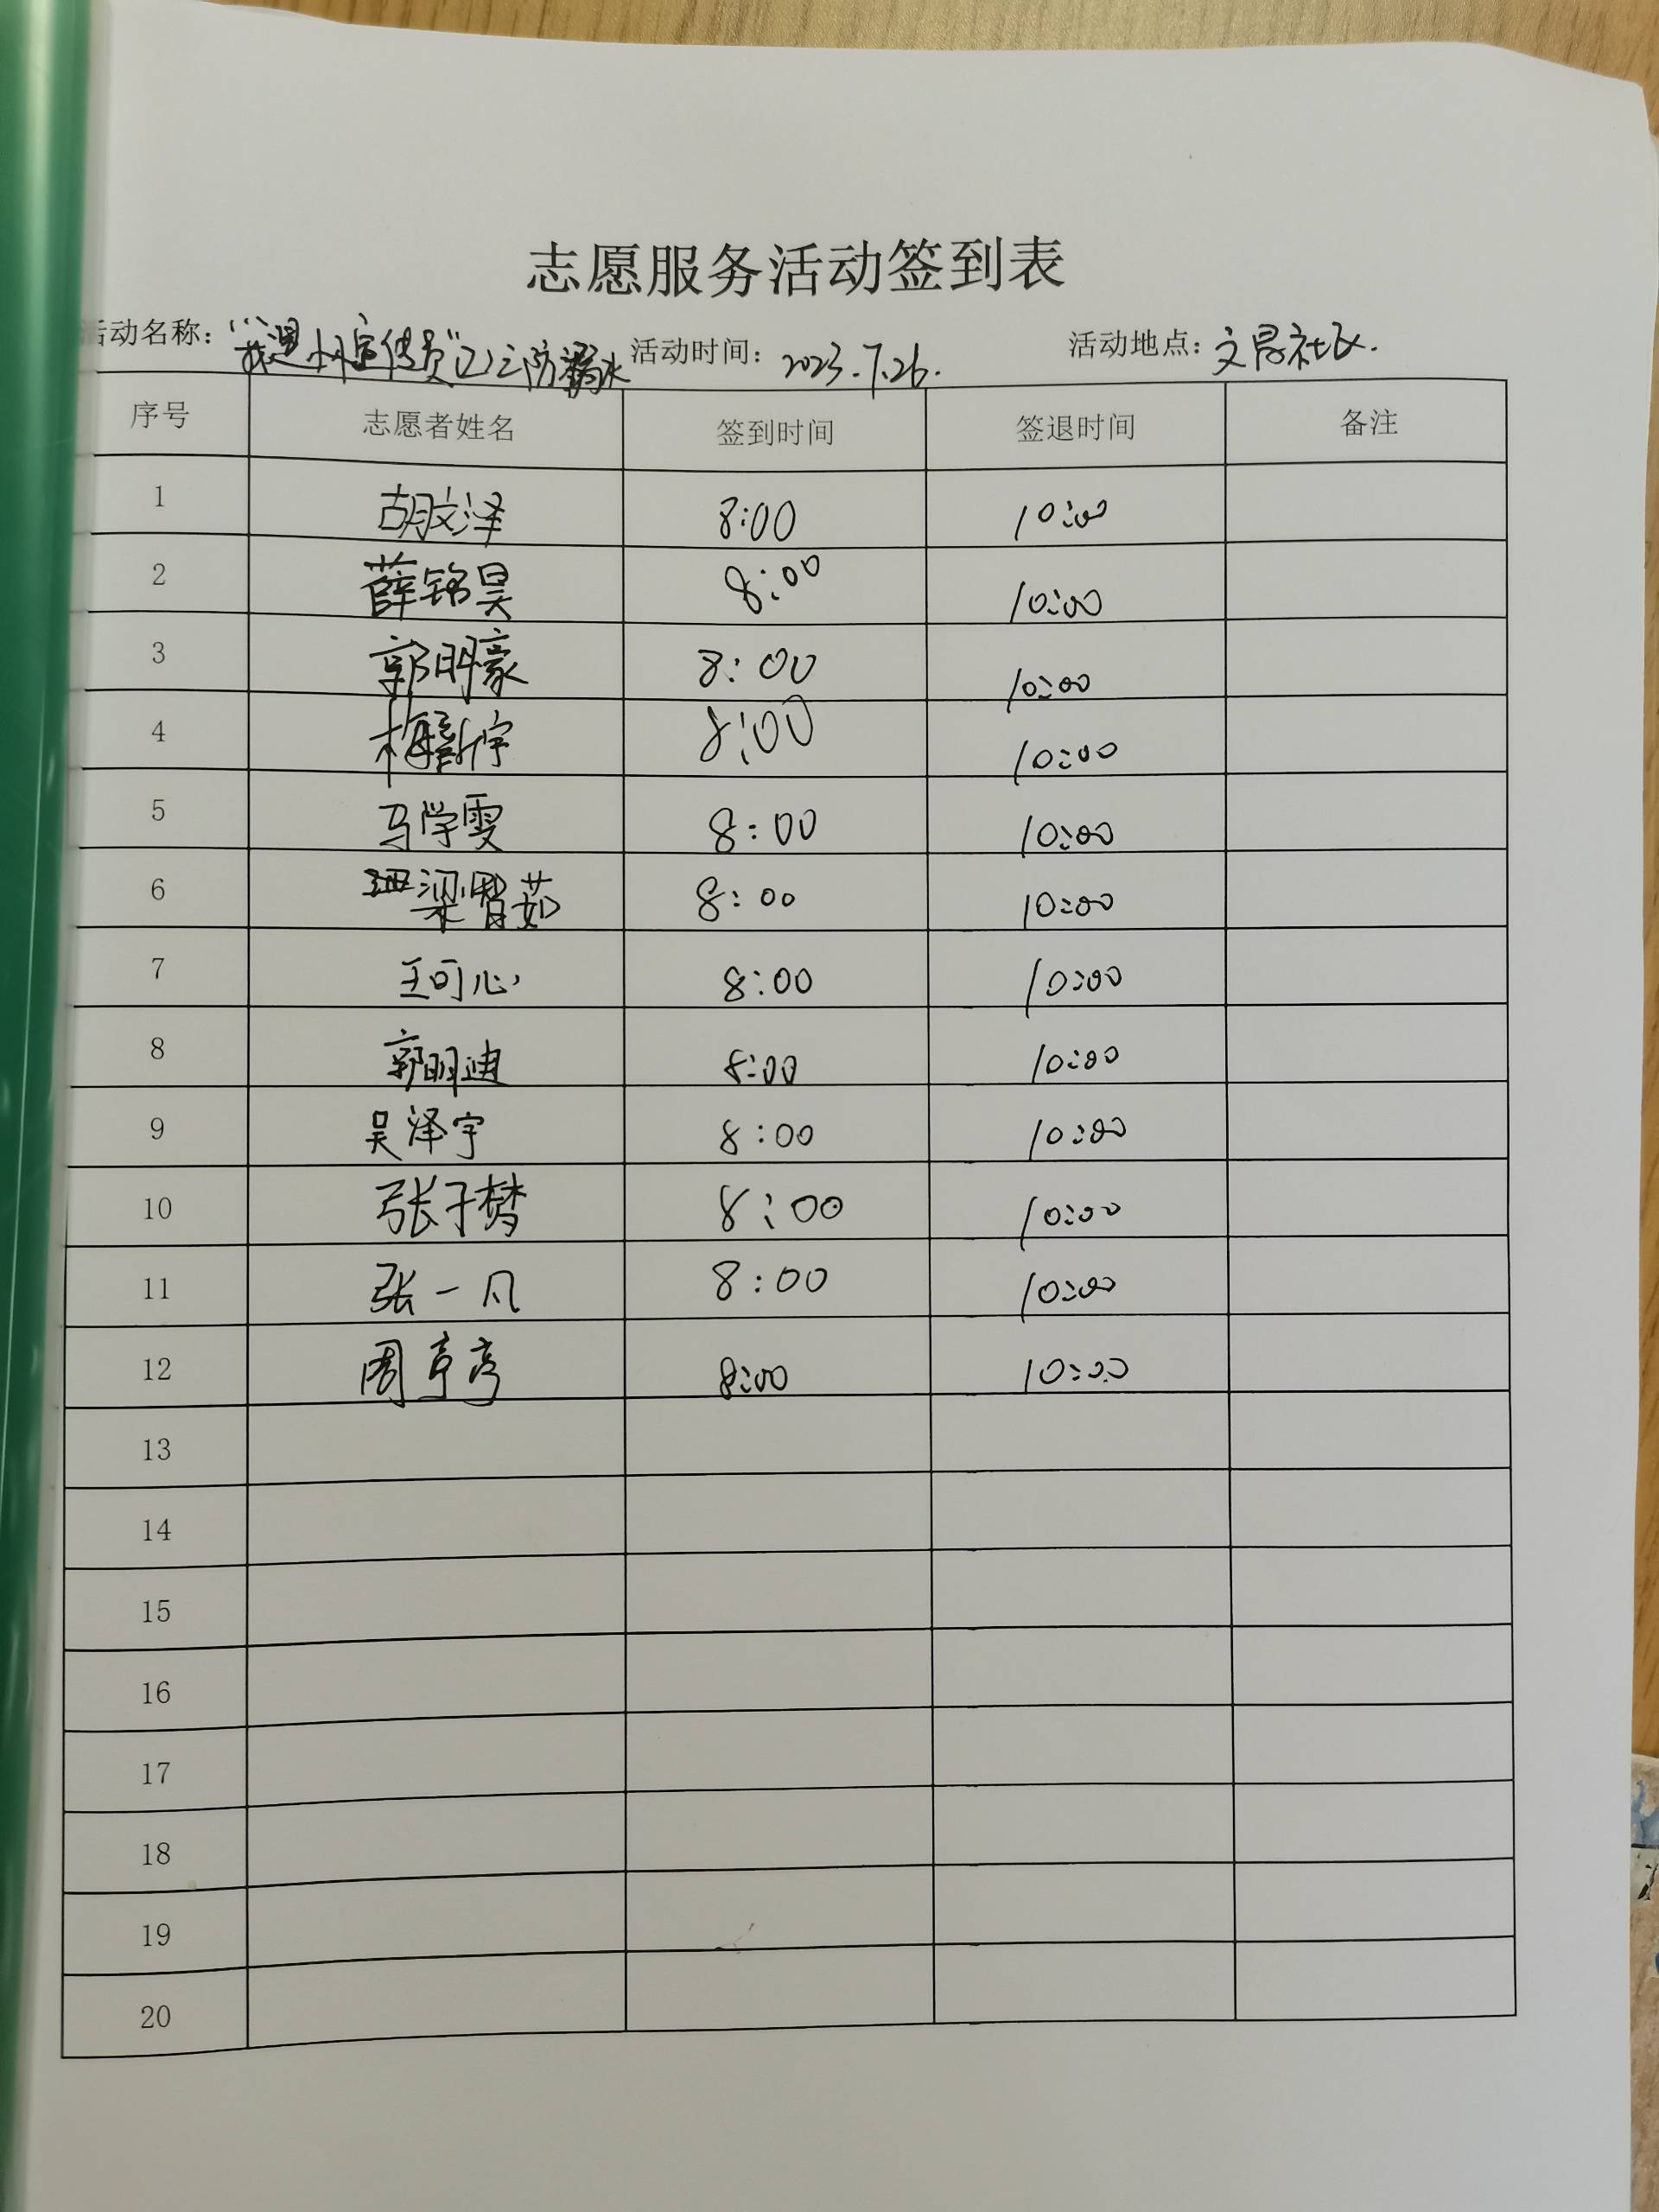 志愿服务活动签到表
活动名称：“我是小小宣传员”(2)之防溺水 活动时间：2023.7.26. 活动地点：文昌社区.
序号 志愿者姓名 签到时间 签退时间 备注
1 胡文泽 8:00 10:00
2 薛铭昊 8:00 10:00
3 郭明豪 8:00 10:00
4 梅新宇 8:00 10:00
5 马学雯 8:00 10:00
6 梁智茹 8:00 10:00
7 王可心 8:00 10:00
8 郭明迪 8:00 10:00
9 吴泽宇 8:00 10:00
10 张子梦 8:00 10:00
11 张一凡 8:00 10:00
12 周亭亭 8:00 10:00
13
14
15
16
17
18
19
20